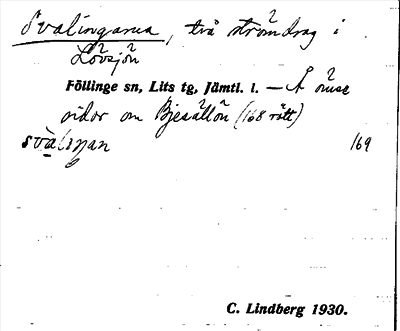 Svalingarna, två strömdrag i
Lövsjön
Föllinge sn, Lits tg, Jämtl. l. — Å ömse
sidor om Bjesällön (168 rätt)
169
C. Lindberg 1930.